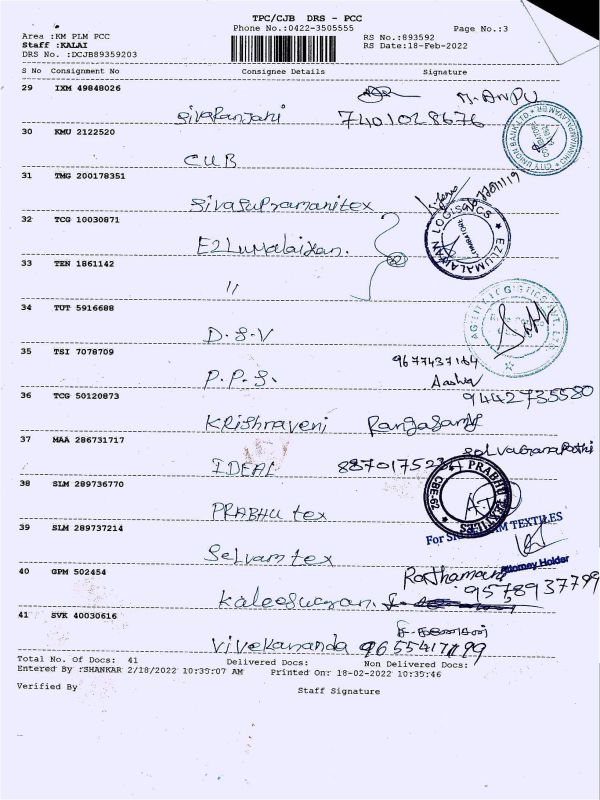 TPC/CJB DRS - PCC
Phone No.:0422-3505555 Page No.:3
Area :KM PLM PCC RS No.:893592
Staff :KALAI RS Date:18-Feb-2022
DRS No. :DCJB89359203
S No Consignment No Consignee Details Signature
29 IXM 49848026
Sivaranjani 7401028676 M. ANPU
30 KMU 2122520
CUB
CITY UNION BANK LTD
31 TMG 200178351
Sivasupramanitex
32 TCG 10030871
EZLUMALAIYAN LOGISTICS
Ezlumalaiyan.
33 TEN 1861142
"
34 TUT 5916688
D.S.V
35 TSI 7078709
9677437164
P.P.S.
36 TCG 50120873
9442735580
Krishnaveni Rangasamy
37 MAA 286731717
IDEAL
38 SLM 289736770
PRABHU tex
PRABHU TEXTILES
CBE-62
39 SLM 289737214
Selvam tex
For TEXTILES
Attorney Holder
40 GPM 502454
9578937799
41 SVK 40030616
Vivekananda
Total No. Of Docs: 41 Delivered Docs: Non Delivered Docs:
Entered By :SHANKAR 2/18/2022 10:35:07 AM Printed On: 18-02-2022 10:35:46
Verified By Staff Signature